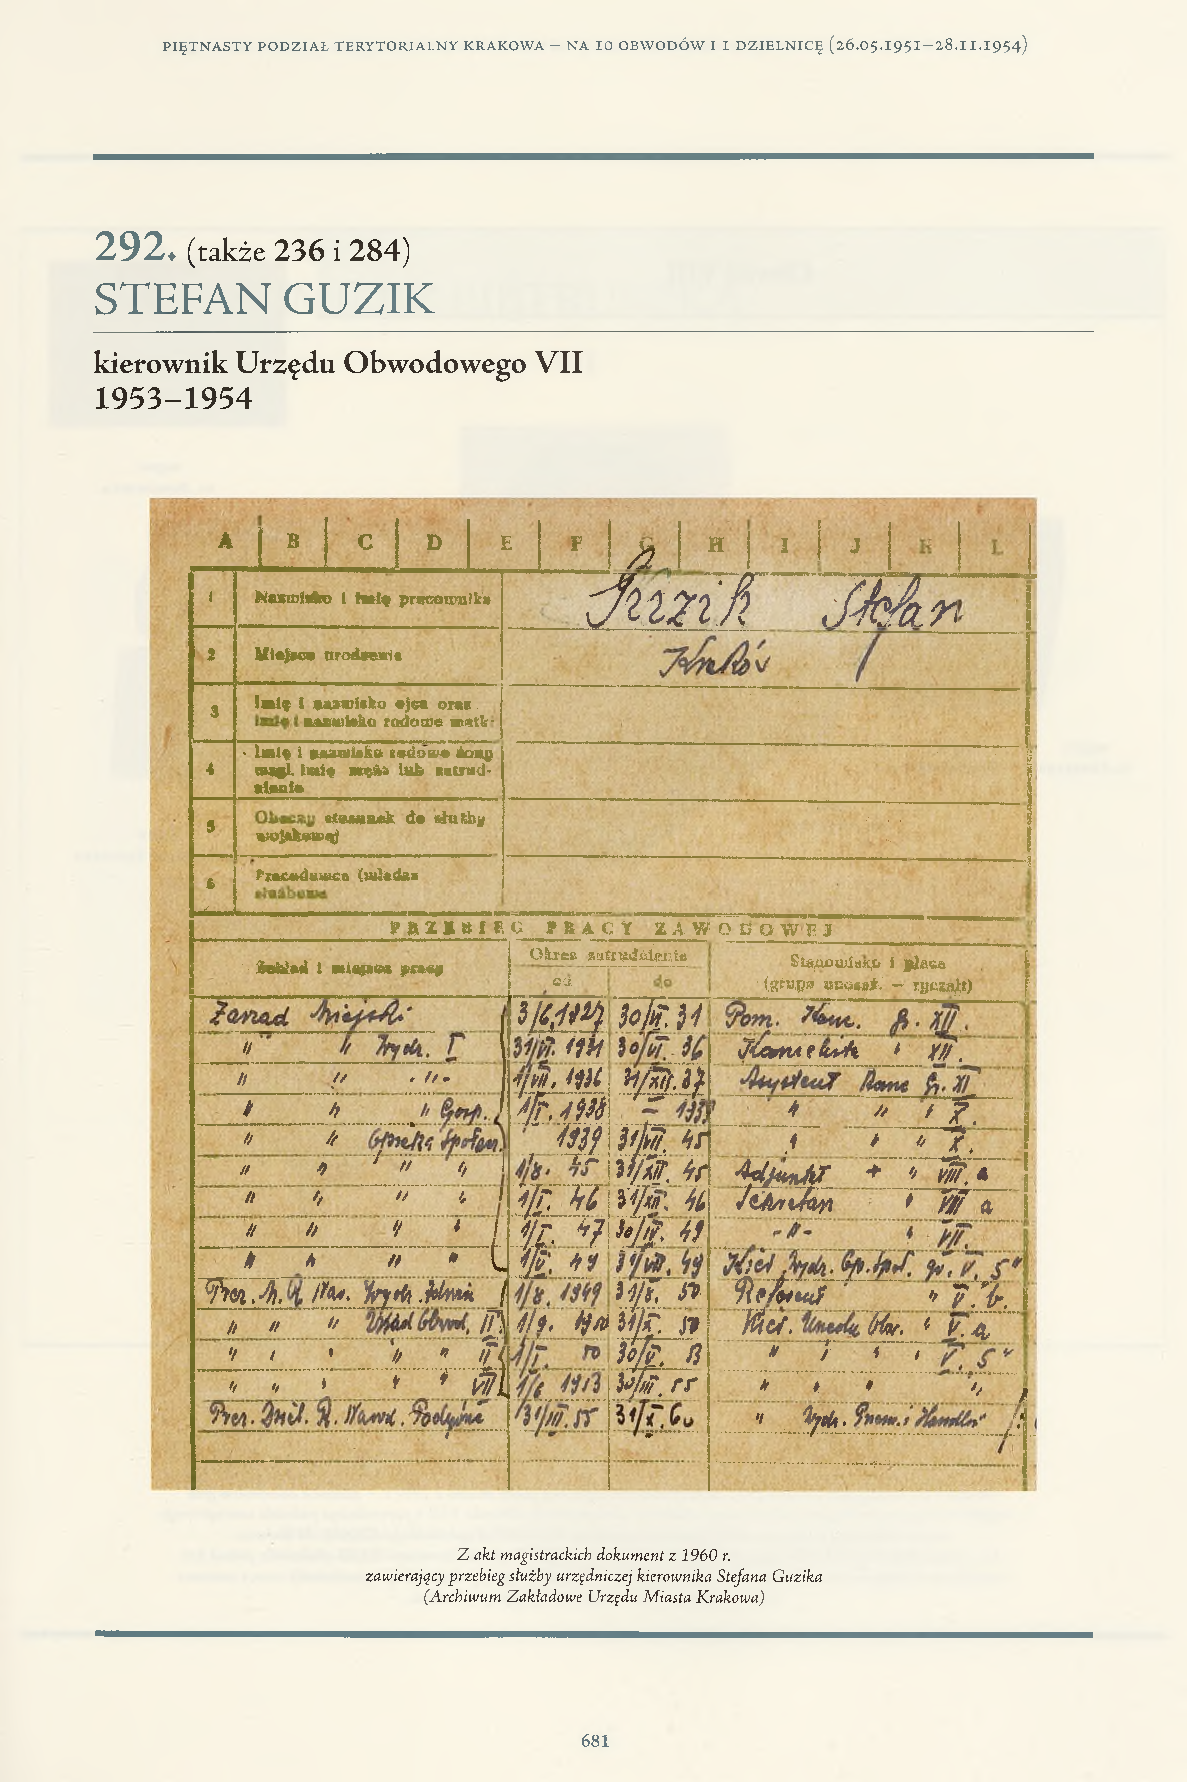 PIĘTNASTY PODZIAŁ TERYTORIALNY KRAKOWA – NA 10 OBWODÓW I 1 DZIELNICĘ (26.05.1951–28.11.1954)
292. (także 236 i 284)
STEFAN GUZIK
kierownik Urzędu Obwodowego VII
1953–1954
A B C D E F G H I J K L
1 Nazwisko i imię pracownika Guzik Stefan
2 Miejsce urodzenia Kraków
3 Imię i nazwisko ojca oraz
imię i nazwisko rodowe matki
4 Imię i nazwisko rodowe żony
wzgl. imię męża lub zatrud-
nienie
5 Obecny stosunek do służby
wojskowej
6 Pracodawca (władza
służbowa
PRZEBIEG PRACY ZAWODOWEJ
Zakład i miejsce pracy Okres zatrudnienia Stanowisko i płaca
od do (grupa uposaż. – ryczałt)
Zarząd Miejski 3/6.1927 30/VI. 31 Pom. Kanc. Gr. XII.
" " Wydz. I 31/VI. 1931 30/VI. 36 " XII.
" " " 1/VII. 1936 31/XII. 37 Asystent Kanc Gr. XI
" " " Gosp. 1/I. 1938 – 1938 " " " X.
" " Opieka Społecz. 1939 31/VII. 45 " " " X.
" " " " 1/8. 45 31/XII. 45 Adjunkt " VIII. a
" " " " 1/I. 46 31/XII. 46 Sekretarz " VIII a
" " " " 1/I. 47 30/IV. 49 -"- " VII.
" " " " 1/V. 49 31/VII. 49 Kier. Wydz. Op. Społ. gr. V. 5"
Prez. M. R. Nar. Wydz. Zdrowia 1/8. 1949 31/8. 50 Referent " V. b.
" " " Urząd Obwod. II 1/9. 1950 31/X. 50 Kier. Urzędu Obw. " V. a
" " " " " II 1/I. 50 30/V. 53 " " " " V. 5"
" " " " " VII 1/6 1953 30/III. 55 " " " "
Prez. Dziel. R. Narod. Podgórze 31/III. 55 31/X. 60 " Wydz. Przem. i Handlu
Z akt magistrackich dokument z 1960 r.
zawierający przebieg służby urzędniczej kierownika Stefana Guzika
(Archiwum Zakładowe Urzędu Miasta Krakowa)
681